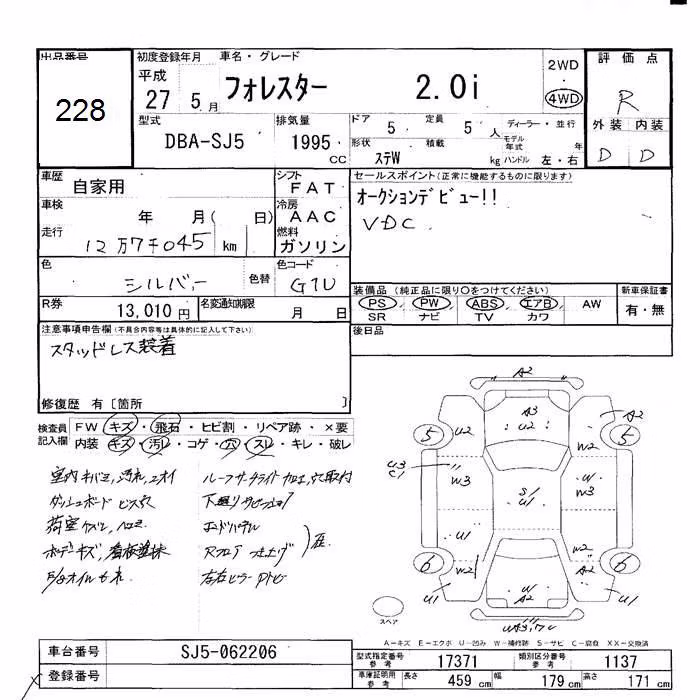 出品番号
228
初度登録年月
平成
27 5月
車名・グレード
フォレスター 2.0i
2WD
4WD
評価点
R
外装 内装
D D
型式
DBA-SJ5
排気量
1995 CC
ドア 5 定員 5 人
ディーラー・並行
モデル年式 年
形状 ステW 積載 kg ハンドル 左・右
車歴
自家用
シフト
FAT
車検
年 月( 日)
冷房
AAC
走行
12万7千045 km
燃料
ガソリン
色
シルバー 色替
色コード
G1U
R券
13,010円
名変通知期限
月 日
セールスポイント(正常に機能するものに限ります)
オークションデビュー!!
VDC
装備品(純正品に限り○をつけてください)
PS PW ABS エアB AW
SR ナビ TV カワ
新車保証書
有・無
後日品
注意事項申告欄(不具合内容等は具体的に記入して下さい)
スタッドレス装着
修復歴 有[箇所 ]
検査員記入欄
FW キズ・飛石・ヒビ割・リペア跡・×要
内装 キズ・汚レ・コゲ・穴・スレ・キレ・破レ
室内キバミ,汚れ,ニオイ
ダッシュボード ビス穴
荷室ケズレ,
ボデーキズ,看板塗抹
F/Gオイルモレ
ルーフサーチライト加工,穴取付
下廻りサビ
エンドパネル
Rフロア 突上げ
左右ピラー
A2
A3
U2
A2
5
U2
5
U3
C1
W3
S/
U1
W
W3
U1
W
6
W2
W2
6
U1
W
A2
A2
U1
U1
スペア
A-キズ E-エクボ U-凹み W-補修跡 S-サビ C-腐食 XX-交換済
車台番号
SJ5-062206
登録番号
型式指定番号 参考
17371
類別区分番号 参考
1137
車庫証明用 参考
長さ 459 cm 幅 179 cm 高さ 171 cm